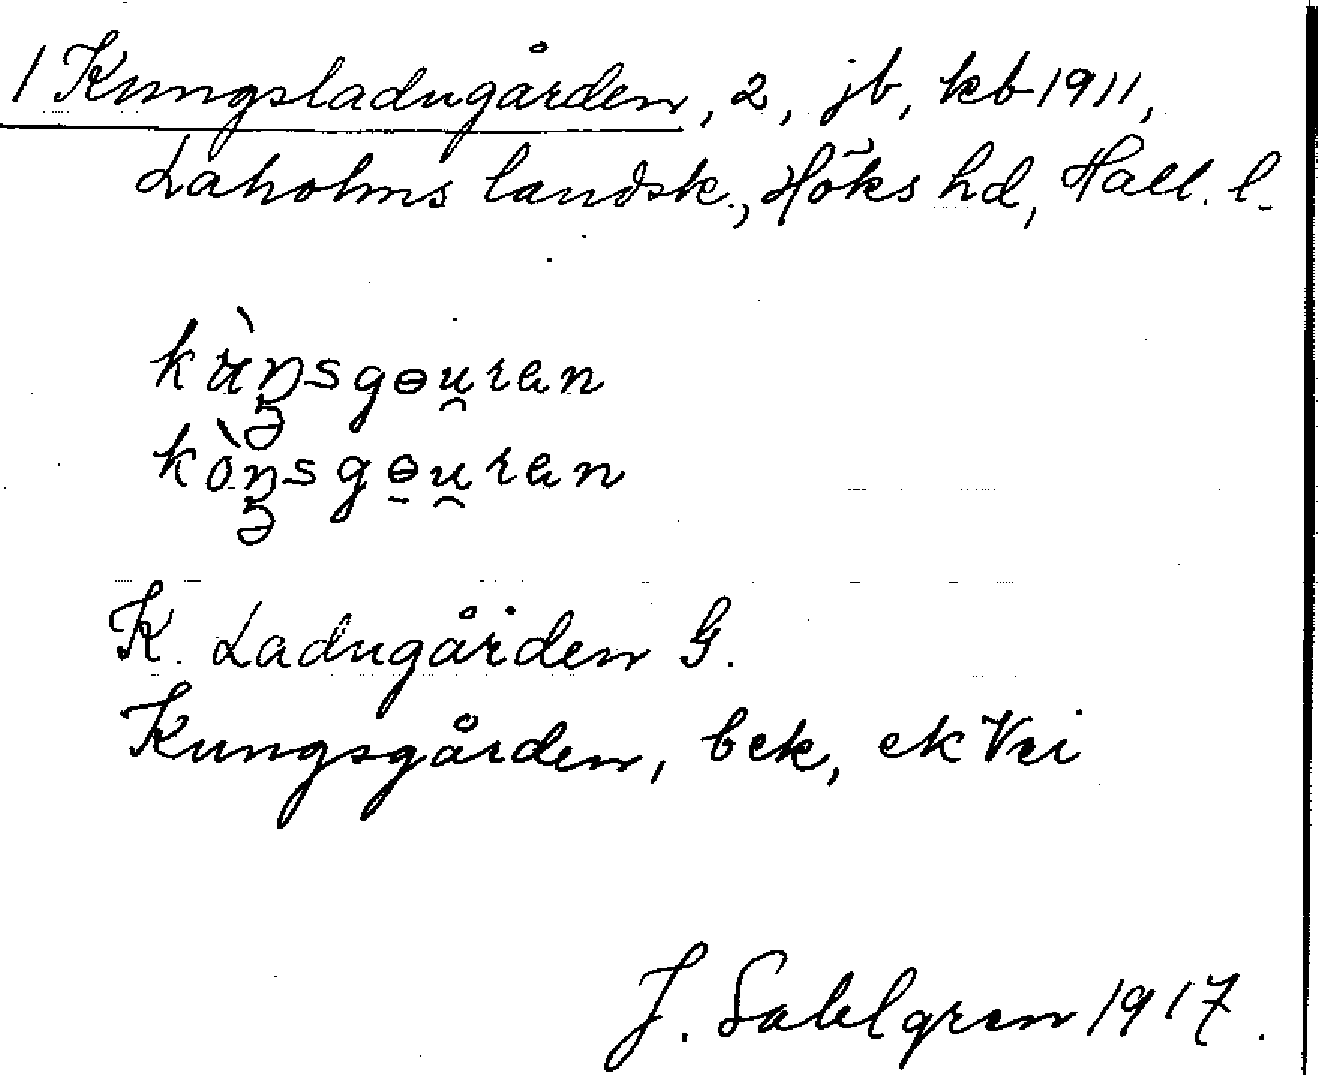 1 Kungsladugården, 2, jb, kb 1911,
Laholms landsk., Höks hd, Hall. l.
kùŋsgɵu̯ran
kòŋsgɵu̯ran
K. Ladugården G.
Kungsgården, bek, ek Vri
J. Sahlgren 1917.